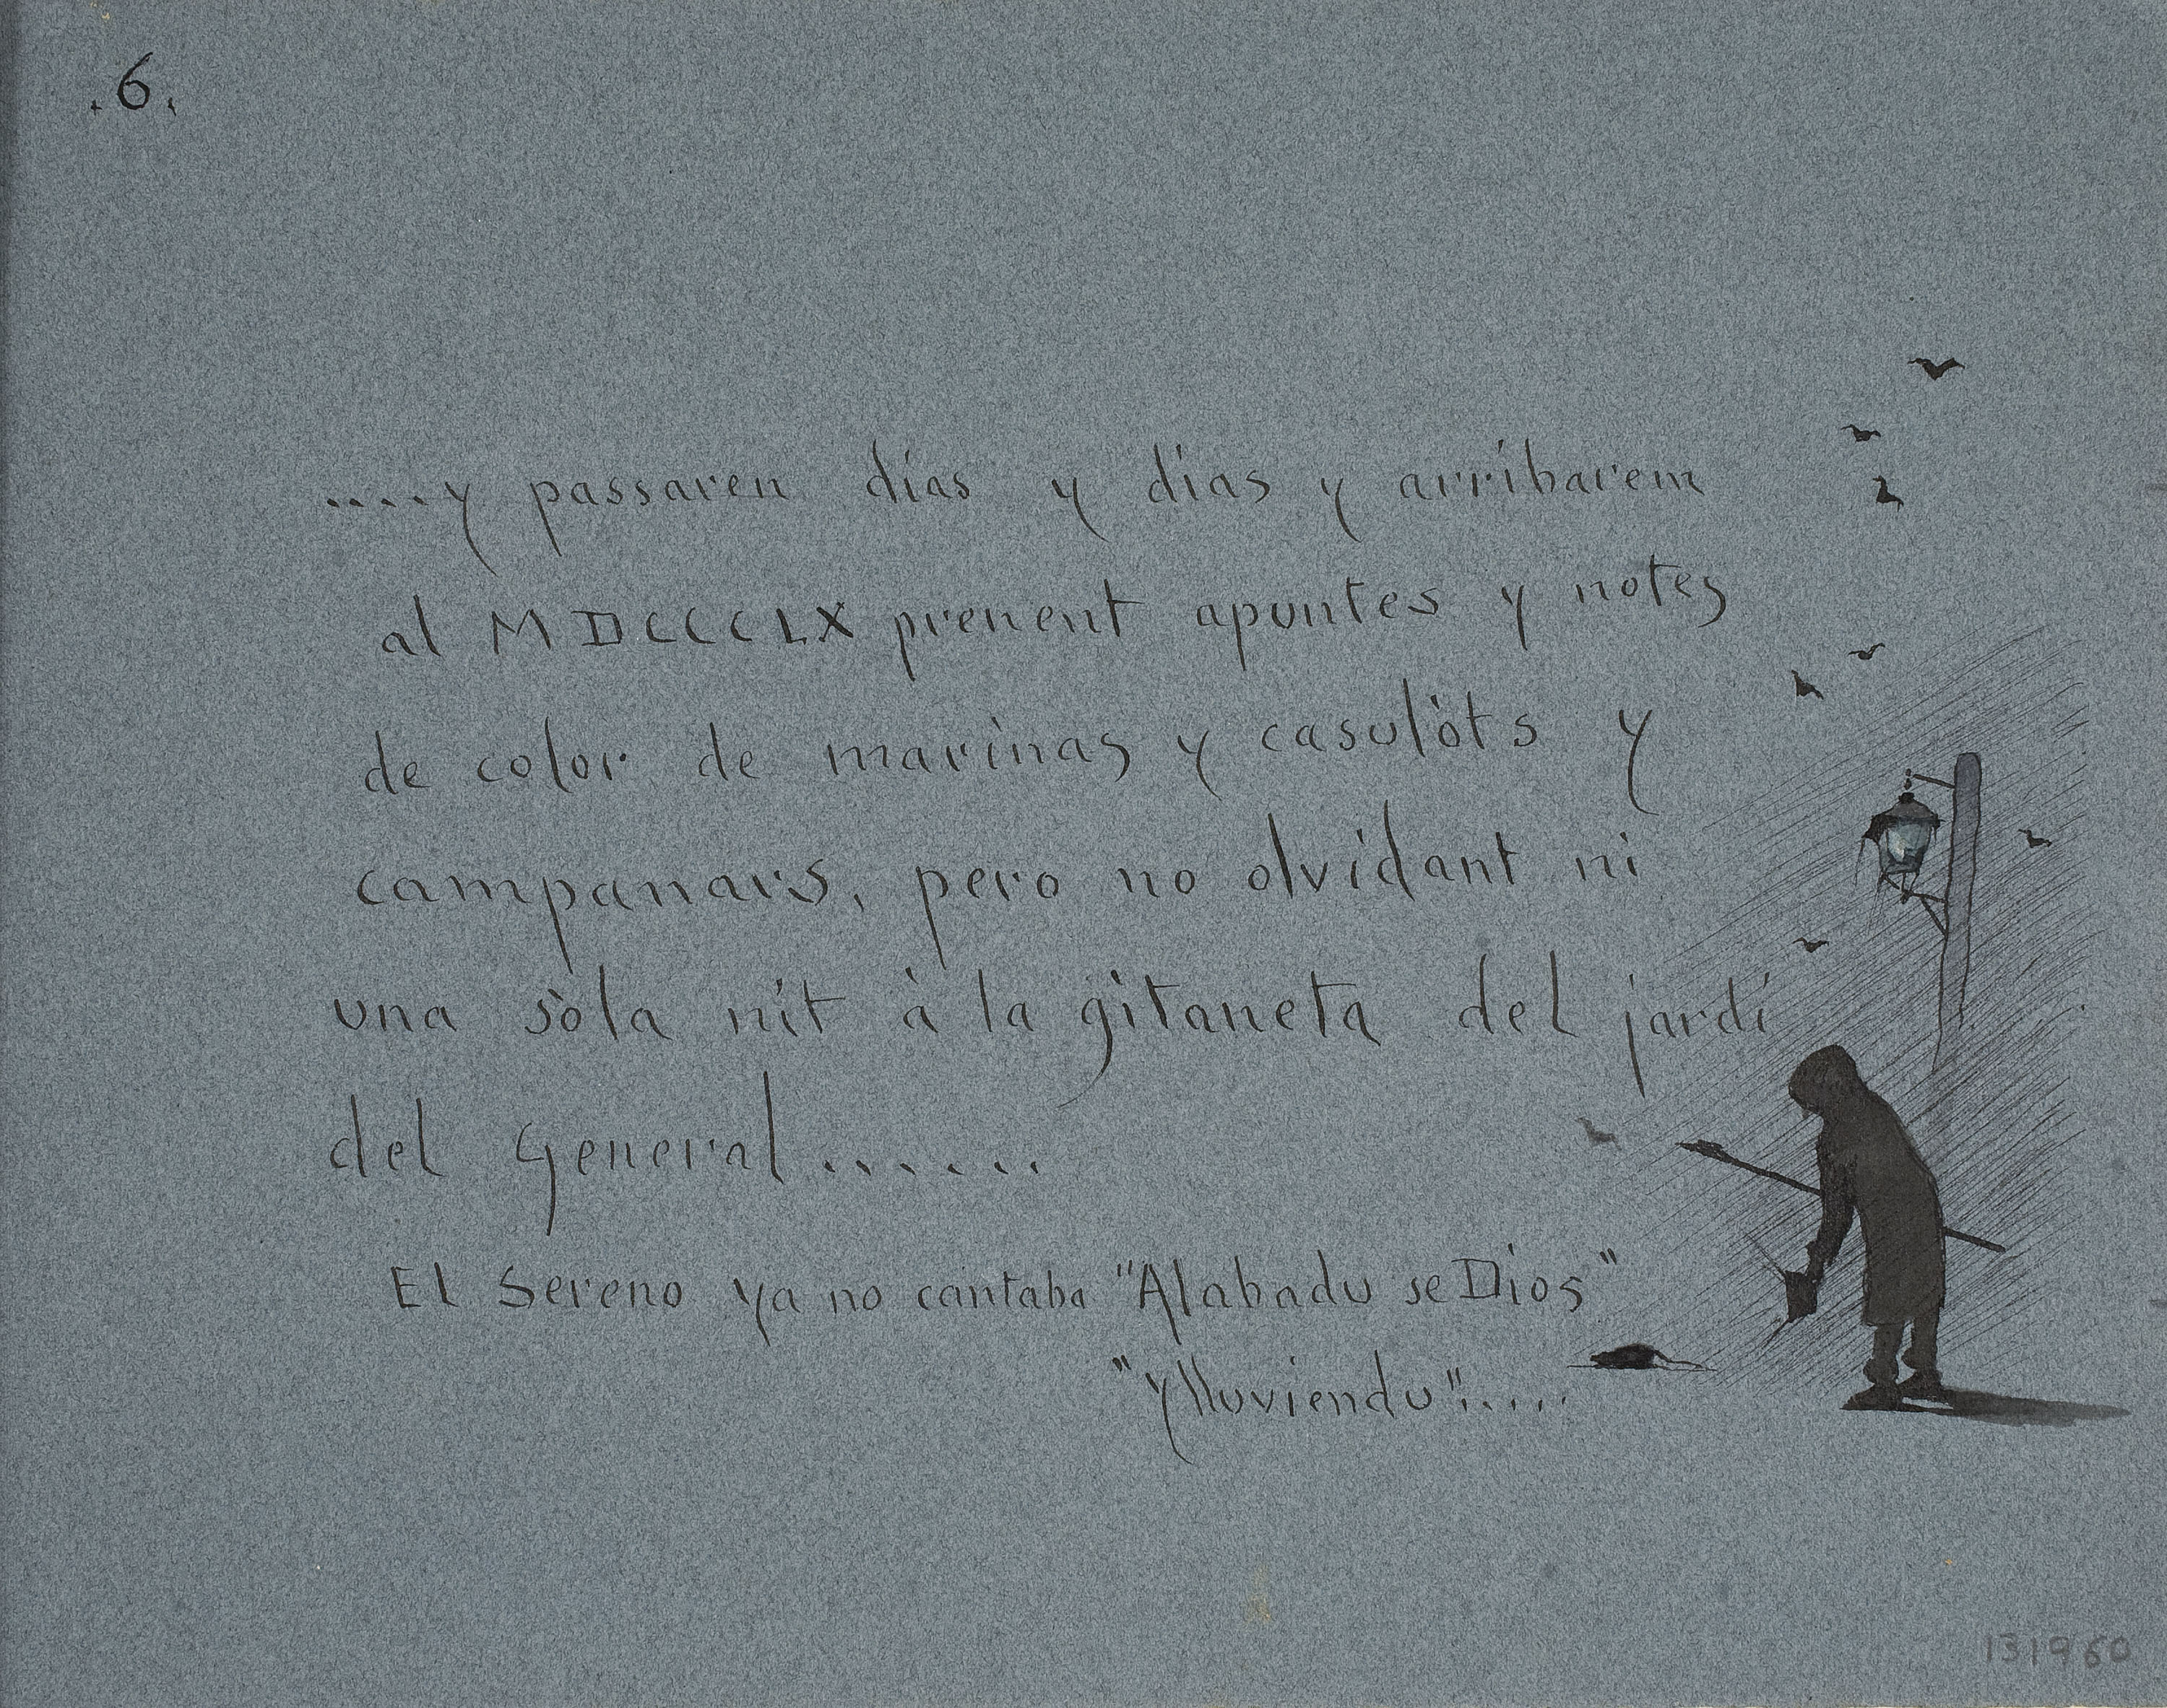 .6.
....y passaren días y días y arribarem
al MDCCCLX prenent apuntes y notes
de color de marinas y casulòts y
campanars, pero no olvidant ni
una sòla nit à la gitaneta del jardí
del General.......
El Sereno ya no cantaba "Alabadu se Dios"
"y lluviendu".....
131960